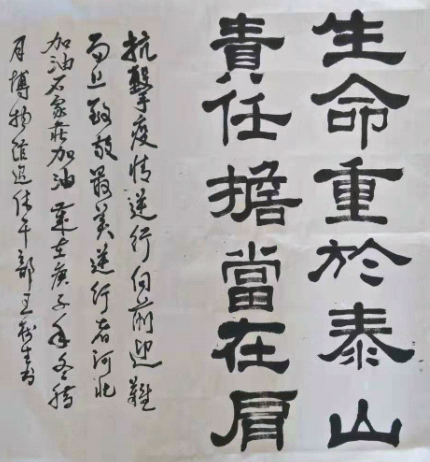 生命重於泰山
責任擔當在肩
抗擊疫情逆行向前迎難
而上致敬最美逆行者河北
加油石家庄加油 歲在庚子年冬腊
月博物館退休干部王